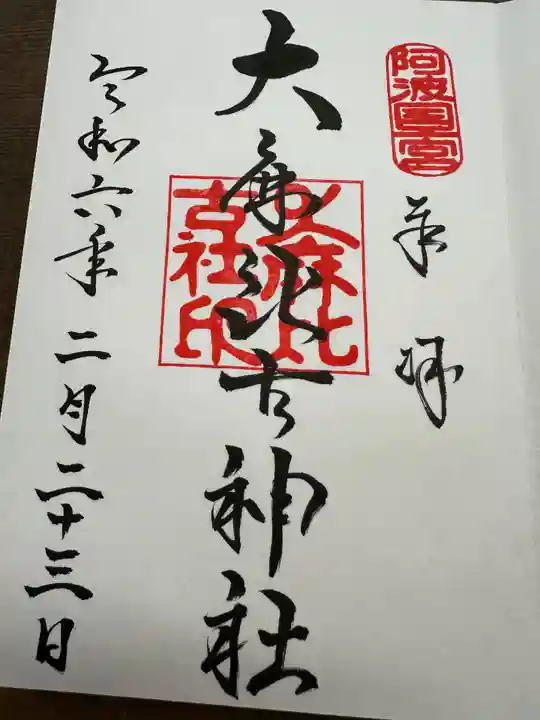 阿波国一宮
奉拝
大麻比古神社
大麻比古社印
令和六年二月二十三日